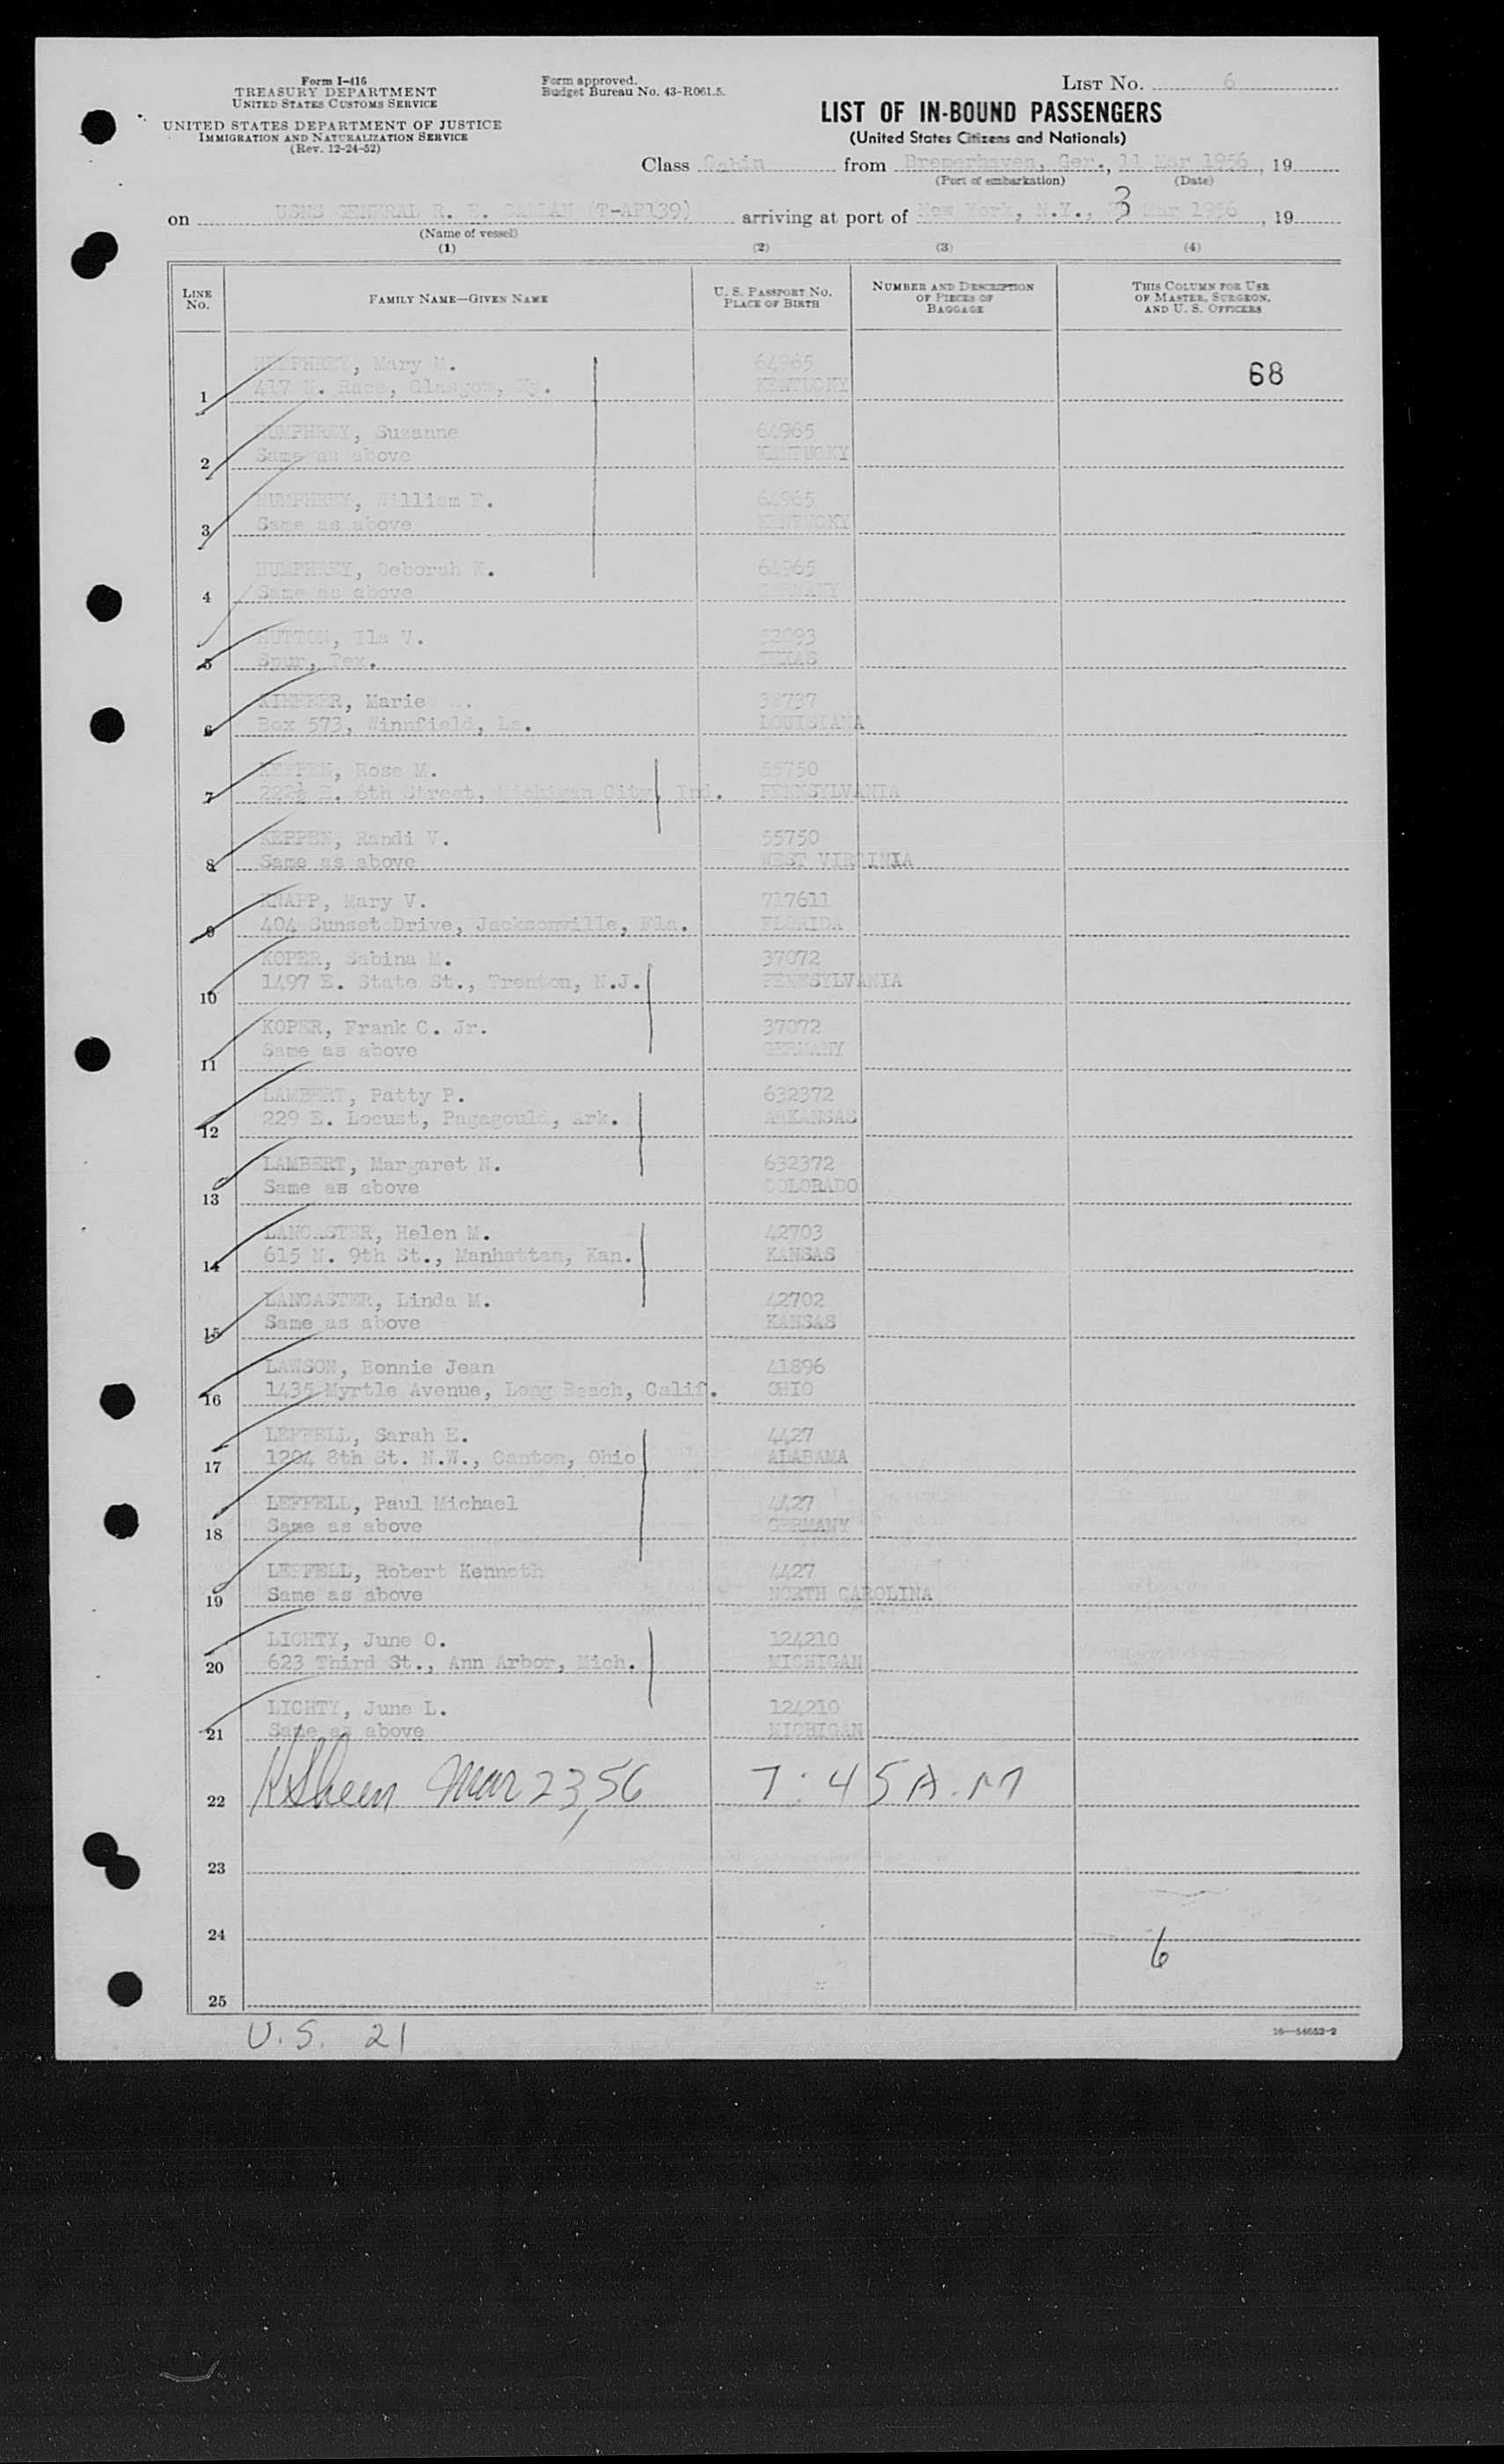 Form I-416
TREASURY DEPARTMENT
UNITED STATES CUSTOMS SERVICE
UNITED STATES DEPARTMENT OF JUSTICE
IMMIGRATION AND NATURALIZATION SERVICE
(Rev. 12-24-52)
Form approved.
Budget Bureau No. 43-R061.5.
LIST No. 6
LIST OF IN-BOUND PASSENGERS
(United States Citizens and Nationals)
Class Cabin from Bremerhaven, Ger., 11 Mar 1956, 19
(Port of embarkation) (Date)
on USNS GENERAL R. E. CALLAN (T-AP139) arriving at port of New York, N.Y., 3 Mar 1956, 19
(Name of vessel)
(1) (2) (3) (4)
LINE No. FAMILY NAME—GIVEN NAME U. S. PASSPORT NO. PLACE OF BIRTH NUMBER AND DESCRIPTION OF PIECES OF BAGGAGE THIS COLUMN FOR USE OF MASTER, SURGEON, AND U. S. OFFICERS
HUMPHREY, Mary M. 64965 68
1 417 N. Race, Glasgow, Ky. KENTUCKY
HUMPHREY, Suzanne 64965
2 Same as above KENTUCKY
HUMPHREY, William F. 64965
3 Same as above KENTUCKY
HUMPHREY, Deborah K. 64965
4 Same as above GERMANY
HUTTON, Ila V. 52093
5 Spur, Tex. TEXAS
Marie 38737
6 Box 573, Winnfield, La. LOUISIANA
KEPPEN, Rose M. 55750
7 222½ E. 6th Street, Michigan City, Ind. PENNSYLVANIA
KEPPEN, Randi V. 55750
8 Same as above WEST VIRGINIA
KNAPP, Mary V. 717611
9 404 Sunset Drive, Jacksonville, Fla. FLORIDA
KOPER, Sabina M. 37072
10 1497 E. State St., Trenton, N.J. PENNSYLVANIA
KOPER, Frank C. Jr. 37072
11 Same as above GERMANY
LAMBERT, Patty P. 632372
12 229 E. Locust, Pagagould, Ark. ARKANSAS
LAMBERT, Margaret N. 632372
13 Same as above COLORADO
LANCASTER, Helen M. 42703
14 615 N. 9th St., Manhattan, Kan. KANSAS
LANCASTER, Linda M. 42702
15 Same as above KANSAS
LAWSON, Bonnie Jean 41896
16 1435 Myrtle Avenue, Long Beach, Calif. OHIO
LEFFELL, Sarah E. 4427
17 1204 8th St. N.W., Canton, Ohio ALABAMA
LEFFELL, Paul Michael 4427
18 Same as above GERMANY
LEFFELL, Robert Kenneth 4427
19 Same as above NORTH CAROLINA
LICHTY, June O. 124210
20 623 Third St., Ann Arbor, Mich. MICHIGAN
LICHTY, June L. 124210
21 Same as above MICHIGAN
22 Mar 23, 56 7:45 A.M
23
24
6
25
U.S. 21
16—54652-2